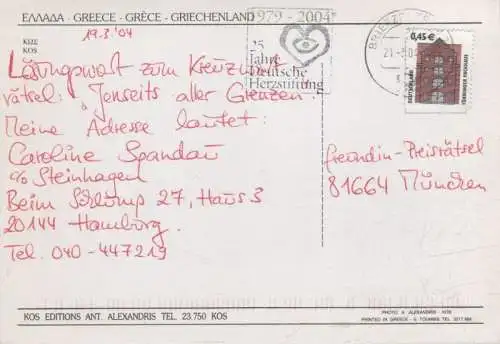 ΕΛΛΑΔΑ - GREECE - GRÈCE - GRIECHENLAND
ΚΩΣ
KOS
19.3.'04
Lösungswort zum Kreuzwort-
rätsel: Jenseits aller Grenzen.
Meine Adresse lautet:
Caroline Spandau
c/o Steinhagen
Beim Schlump 27, Haus 3
20144 Hamburg.
Tel. 040-447219
1979 - 2004
25
Jahre
Deutsche
Herzstiftung
BRIEFZ
21.-3.04
0,45 €
DEUTSCHLAND
Freundin-Preisrätsel
81664 München
KOS EDITIONS ANT. ALEXANDRIS TEL. 23.750 KOS
PHOTO: A. ALEXANDRIS - KOS
PRINTED IN GREECE - G. TOUMBIS TEL.